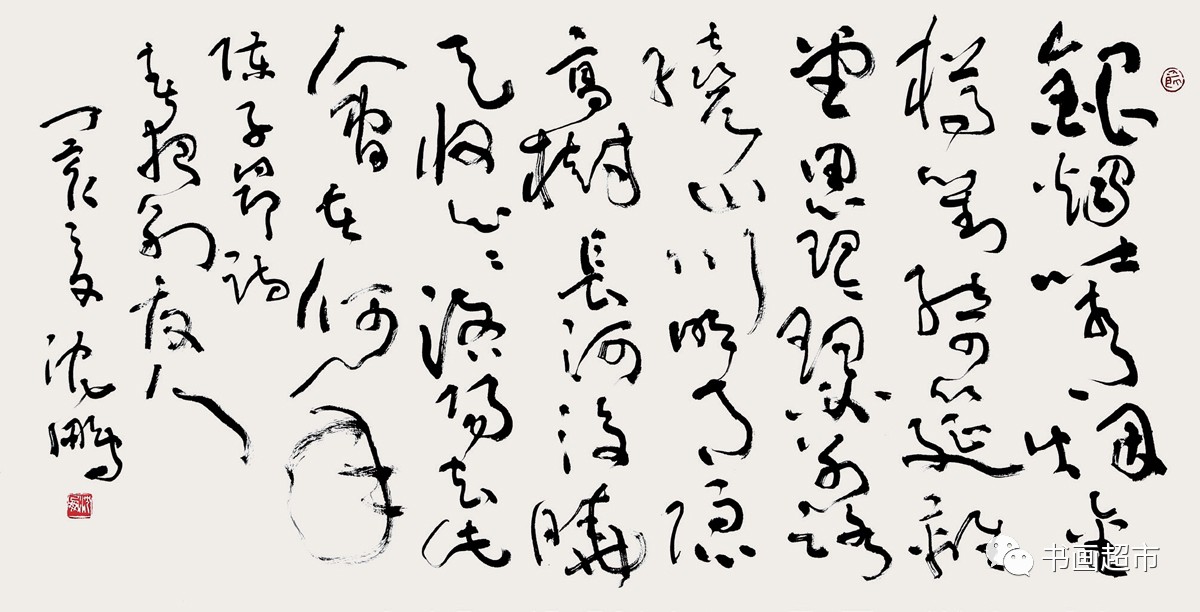 銀燭吐青煙金
樽對綺筵離
堂思琴瑟別路
繞山川明月隱
高樹長河没曉
天悠〻洛陽去此
會在何年
陳子昂詩
春夜別友人
丁亥夏沈鵬
书画超市